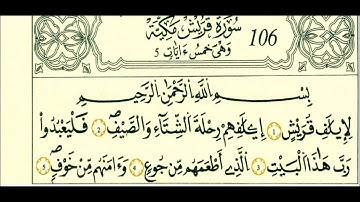 سُورَةُ قُرَيْشٍ مَكِّيَّةٌ 106
وَهِيَ خَمْسُ ءَايَاتٍ 5
بِسْمِ اِللَّهِ اِلرَّحْمَٰنِ اِلرَّحِيمِ
لِإِيلَٰفِ قُرَيْشٍ ١ إِۦلَٰفِهِمْ رِحْلَةَ اَلشِّتَآءِ وَالصَّيْفِ ٢ فَلْيَعْبُدُواْ
رَبَّ هَٰذَا اَلْبَيْتِ ٣ اِلذِے أَطْعَمَهُم مِّن جُوعٍ ٤ وَءَامَنَهُم مِّنْ خَوْفٍ ٥